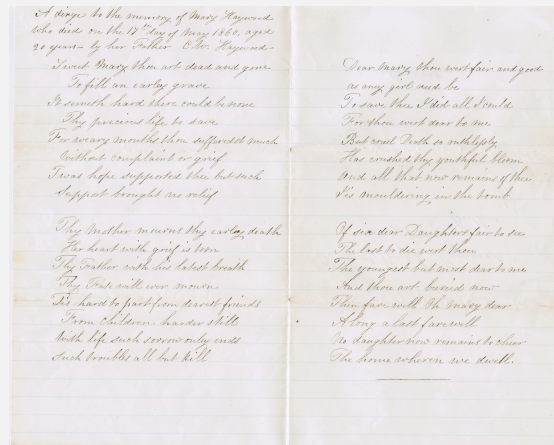 A dirge to the memory of Mary Haywood
who died on the 17th day of May 1860, aged
20 years - by her Father C. W. Haywood
Sweet Mary thou art dead and gone
To fill an earley grave
It semeth hard there could be none
Thy precious life to save
For weary months thou sufferedst much
Without complaint or grief
Twas hope supported thee but such
Support brought no relief
Thy Mother mourns thy earley death
Her heart with grief is torn
Thy Father with his latest breath
Thy Fate will ever mourn
Tis hard to part from dearest friends
From Children harder still
With life such sorrow only ends
Such troubles all but kill
Dear Mary thou wert fair and good
as any girl need be
To save thee I did all I could
For thou wert dear to me
But cruel Death so ruthlessly
Has crushed thy youthful bloom
And all that now remains of thee
Is mouldering in the tomb
Of six dear Daughters fair to see
The last to die wert thou
The youngest but most dear to me
And thou art buried now
Then fare well Oh mary dear
A Long a last farewell
No daughter now remains to cheer
The home wherein we dwell.